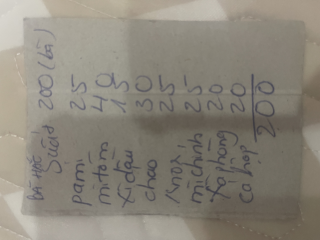 200
pami 25
mì tôm 40
xì dầu 15
chao 30
Knor 25
mì chính 25
xà phòng 20
cá hộp 20
200